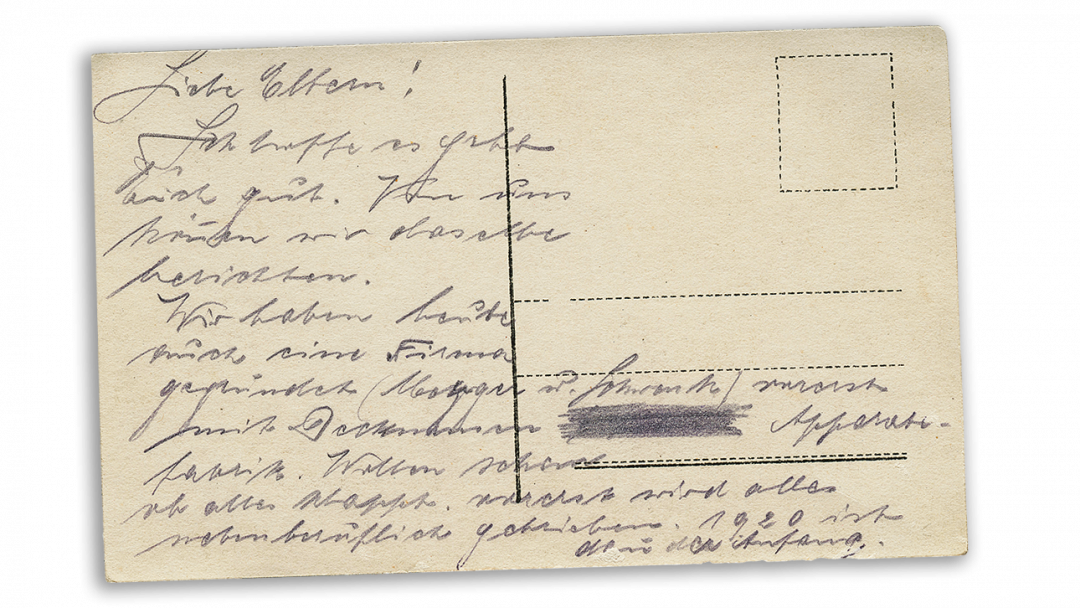 Liebe Eltern!
Ich hoffe es geht
Euch gut. Von uns
können wir dasselbe
berichten.
Wir haben heute
auch eine Firma
gegründet ( u. Schwenk) vorerst
mit Decknamen Apparate-
fabrik. Wollen sehen
ob alles klappt. vorerst wird alles
nebenberuflich getrieben. 1920 ist
der Anfang.